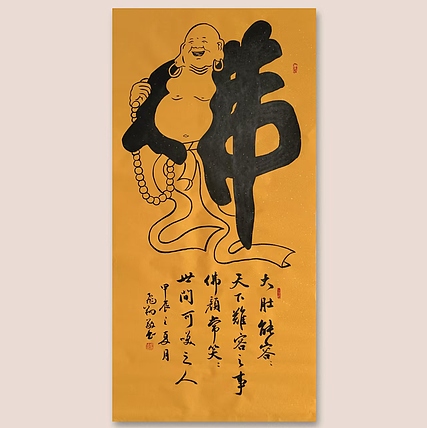 佛
大肚能容〻
天下難容之事
佛顏常笑〻
世間可笑之人
甲辰之夏月